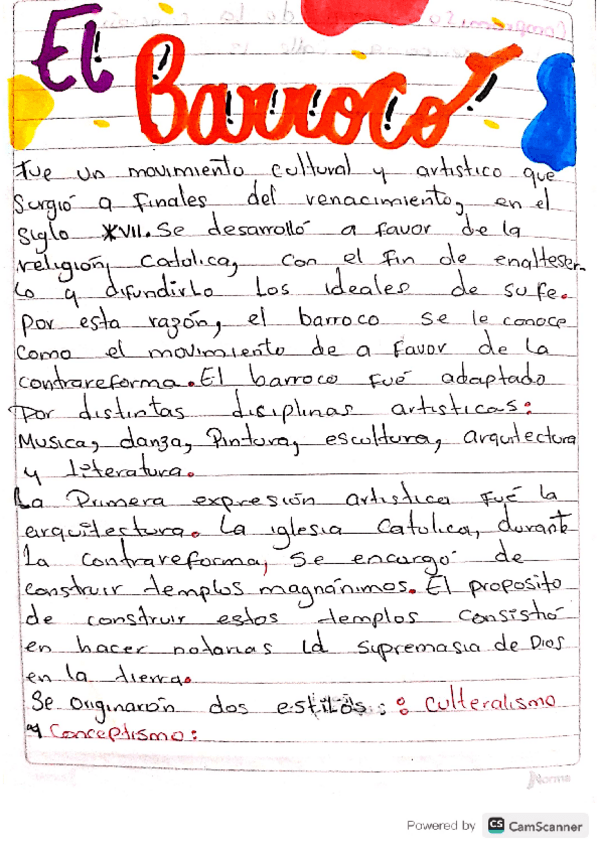 El Barroco
Fue un movimiento cultural y artistico que
Surgió a finales del renacimiento, en el
Siglo XVII. Se desarrolló a favor de la
religión Catolica, con el fin de enalteser-
lo y difundirlo los ideales de su fe.
Por esta razón, el barroco se le conoce
Como el movimiento de a favor de la
contrareforma. El barroco fué adaptado
Por distintas disiplinas artisticas:
Musica, danza, Pintura, escultura, arquitectura
y literatura.
La Primera expresión artistica fué la
arquitectura. La iglesia Catolica, durante
La contrareforma, Se encargó de
construir templos magnánimos. El proposito
de construir estos templos consistió
en hacer notarias la supremasia de Dios
en la tierra.
Se originarón dos estilos: : Culteralismo
y Conceptismo:
Norma
Powered by CS CamScanner